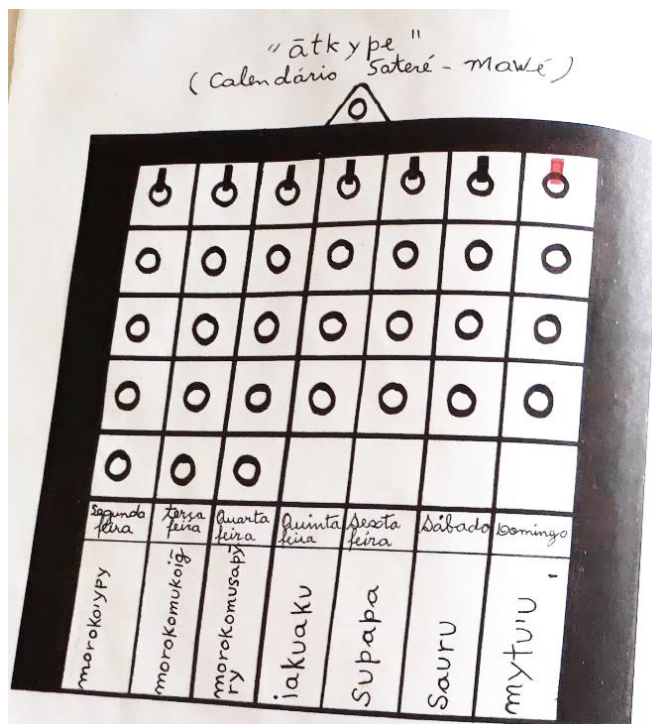 "ãtkype"
(Calendário Sateré-Mawé)
Segunda feira
terça feira
Quarta feira
Quinta feira
Sexta feira
Sábado
Domingo
morokoiypy
morokomukoig̃
morokomusapy
ry
iakuaku
Supapa
Sauru
mytu'u